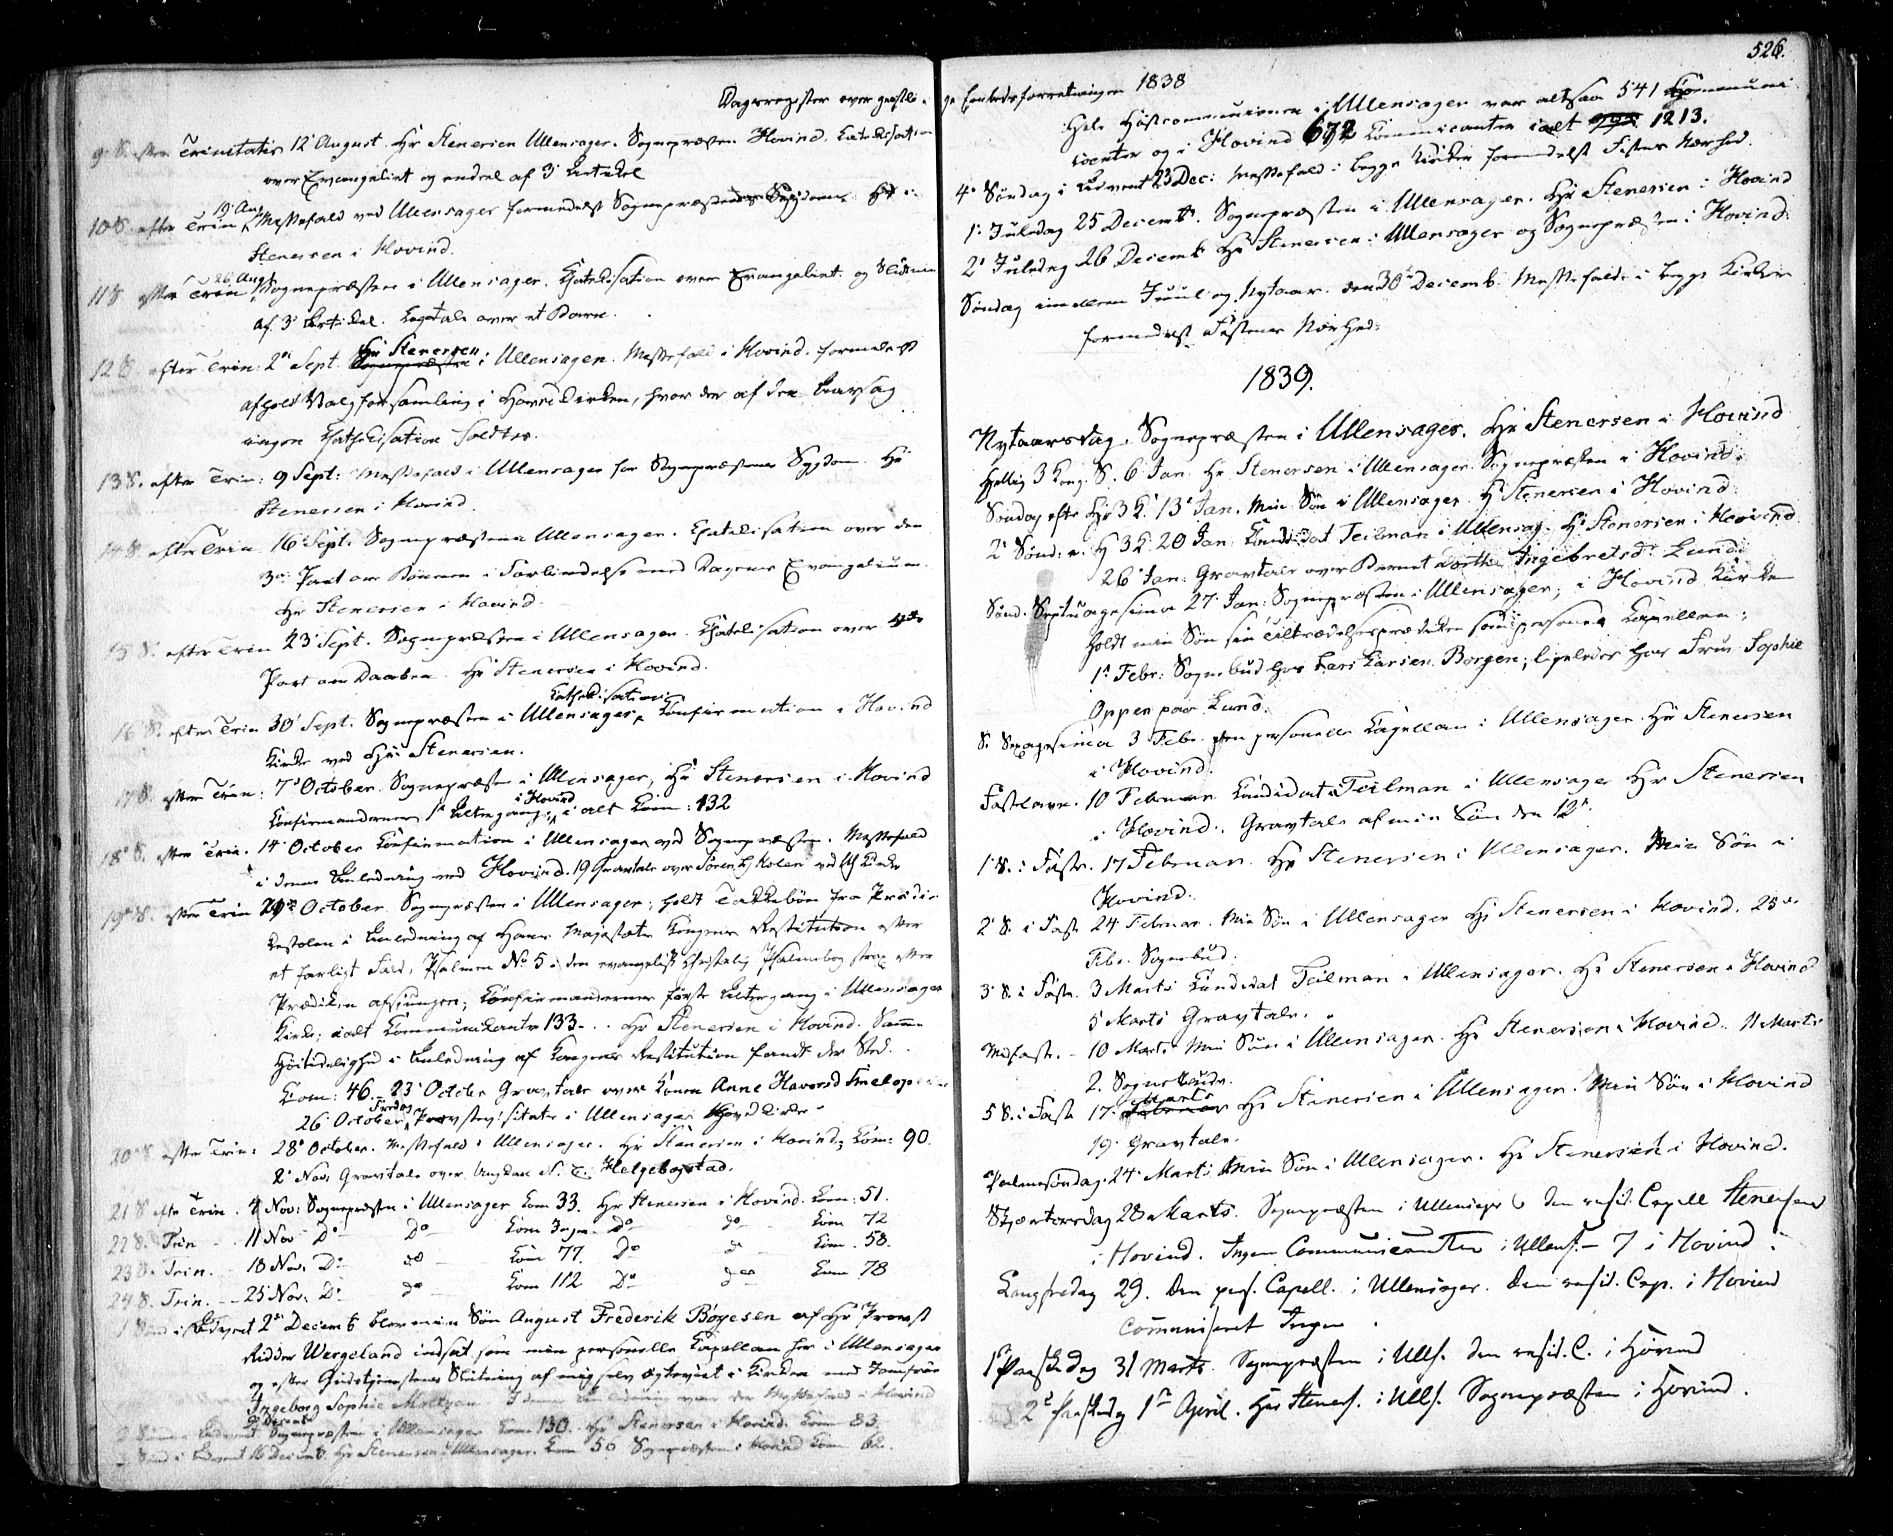 Dagsregister over geistlige Embedsforretninger 1838
9. S. efter Trinitatis 12 August. Hr Stenersen Ullensager. Sognepræsten Hovind. Catekisation
over Evangeliet og endel af 3 Artikel
10 S. efter Trin 19 Aug Messefald ved Ullensager formedelst Sognepræstens Sygdom. Hr
Stenersen i Hovind.
11 S efter Trin 26 Aug Sognepræsten i Ullensager. Chatekisation over Evangeliet og Slutning
af 3 Artikel. Ligtale over et Barn.
12 S. efter Trin: 2 Sept. Hr Stenersen i Ullensager. Messefald i Hovind. formedelst
afholdt Valgforsamling i Hoved Kirken, hvor der af den Aarsag
ingen Chatekisation holdtes.
13 S. efter Trin: 9 Sept: Messefald i Ullensager for Sognepræstens Sygdom. Hr
Stenersen i Hovind.
14 S. efter Trin 16 Sept. Sognepræsten Ullensager. Chatekisation over den
3die Part om Bönnen i Forbindelse med Dagens Evangelium.
Hr Stenersen i Hovind.
15 S. efter Trin 23 Sept. Sognepræsten i Ullensager. Chatekisation over 4de
Part om Daaben. Hr Stenersen i Hovind.
16 S. efter Trin 30 Sept. Sognepræsten i Ullensager, Cathekisation. Confirmation i Hovind
Kirke ved Hr Stenersen.
17 S. efter Trin: 7 October. Sognepræsten i Ullensager, Hr Stenersen i Hovind
Confirmandernes 1ste Altergang i Hovind, i alt Com: 132
18 S. efter Trin. 14 October Confirmation i Ullensager ved Sognepræsten. Messefald
i denne Anledning ved Hovind. 19 Gravtale over Sören Holen ved Kirke
19 S. efter Trin 21de October. Sognepræsten i Ullensager; holdt Takkebön fra Prædi-
kestolen i Anledning af Hans Majestæts Kongens Restitution efter
et farligt Fald, Psalmen No 5 i den evangelisk christelig Psalmebog strax efter
Prædiken afsjungen; Confirmandernes förste Altergang i Ullensager
Kirke; ialt Communikanter 133. Hr Stenersen i Hovind. Samme
Höitidelighed i Anledning af Kongens Restitution fandt der Sted.
Com: 46. 23 October Gravtale over Konen Anne Haversd
26 October, Fredag Provstevisitats i Ullensager Hoved Kirke
20 S efter Trin: 28 October. Messefald i Ullensager. Hr Stenersen i Hovind; Com: 90.
2 Nov: Gravtale over N. C. Helgebostad.
21 S efter Trin. 4 Nov: Sognepræsten i Ullensager Com 33. Hr Stenersen i Hovind. Com: 51.
22 S. Trin 11 Nov Do Do Com Ingen Do do Com 72
23 S. Trin. 18 Nov. Do do Com 77. Do do Com. 58.
24 S. Trin. 25 Nov. Do do Com 112 Do do Com 78
1 Sönd i Advent 2 Decemb blev min Sön August Frederik Böyesen af Hr Provst
Ridder Wergeland indsat som min personelle Kapellan her i Ullensager
og efter Gudstjenestens Slutning af mig selv ægteviet i Kirken med Jomfrue
Ingeborg Sophie Moltzau. I denne Anledning var der Messefald i Hovind
2 Sönd i Advent 9 Decemb Sognepræsten i Ullensager Com 130. Hr Stenersen i Hovind Com 83.
3 Sönd i Advent 16 Decemb. Hr Stenersen i Ullensager. Com 50 Sognepræsten i Hovind Com 62.
526.
Hele Höstcommunionen i Ullensager var altsaa 541 Communi-
canter og i Hovind 672 Communicanter ialt 1213.
4 Söndag i Advent 23 Dec: Messefald i begge Kirker formedelst Festens Nærhed.
1 Juledag 25 Decemb. Sognepræsten i Ullensager. Hr Stenersen i Hovind
2 Juledag 26 Decemb Hr Stenersen i Ullensager og Sognepræsten i Hovind.
Söndag imellem Juul og Nytaar. den 30 Decemb. Messefald i begge Kirker
formedelst Festens Nærhed.
1839.
Nytaarsdag. Sognepræsten i Ullensager. Hr Stenersen i Hovind
Hellig 3 Kong. S. 6 Jan. Hr Stenersen i Ullensager. Sognepræsten i Hovind.
Söndag efter H 3 K. 13 Jan. Min Sön i Ullensager. Hr Stenersen i Hovind.
2 Sönd: e. H 3 K. 20 Jan: Candidat Teilman i Ullensag. Hr Stenersen i Hovind.
26 Jan: Gravtale over Barnet Dorthe Ingebretsd. Lund.
Sönd. Septuagesima 27 Jan: Sognepræsten i Ullensager; i Hovind Kirke
holdt min Sön sin Tiltrædelsesprædiken som personel Kapellan;
1 Febr: Sognebud hos Lars Larsen Borgen; ligeledes hos Frue Sophie
Oppen paa Lund.
S. Sexagesima 3 Febr. den personelle Kapellan i Ullensager. Hr Stenersen
i Hovind.
Fastelavn. 10 Februar Candidat Teilman i Ullensager Hr Stenersen
i Hovind. Gravtale af min Sön den 12.
1 S. i Faste. 17 Februar. Hr Stenersen i Ullensager. Min Sön i
Hovind.
2 S. i Fast 24 Februar. Min Sön i Ullensager Hr Stenersen i Hovind. 25de
Febr. Sognebud.
3 S. i Faste. 3 Marts Candidat Teilman i Ullensager. Hr Stenersen i Hovind
5 Marts Gravtale.
Midfaste. 10 Marts Min Sön i Ullensager. Hr Stenersen i Hovind. 11 Marts
2. Sognebude.
5 S. i Fast 17. Marts Hr Stenersen i Ullensager. Min Sön i Hovind
19. Gravtale.
Palmesöndag. 24 Marts Min Sön i Ullensager. Hr Stenersen i Hovind.
Skjærtorsdag 28 Marts. Sognepræsten i Ullensager den resid. Capell Stenersen
i Hovind. Ingen Communicanter i Ullens. 7 i Hovind.
Langfredag 29. den pers. Capell. i Ullensager. Den resid. Cap. i Hovind
Communiceret Ingen.
1ste Paaskedag 31 Marts. Sognepræsten i Ulls. den resid. C. i Hovind
2d Paaskedag 1ste April. Hr Steners. i Ulls. Sognepræsten i Hovind.